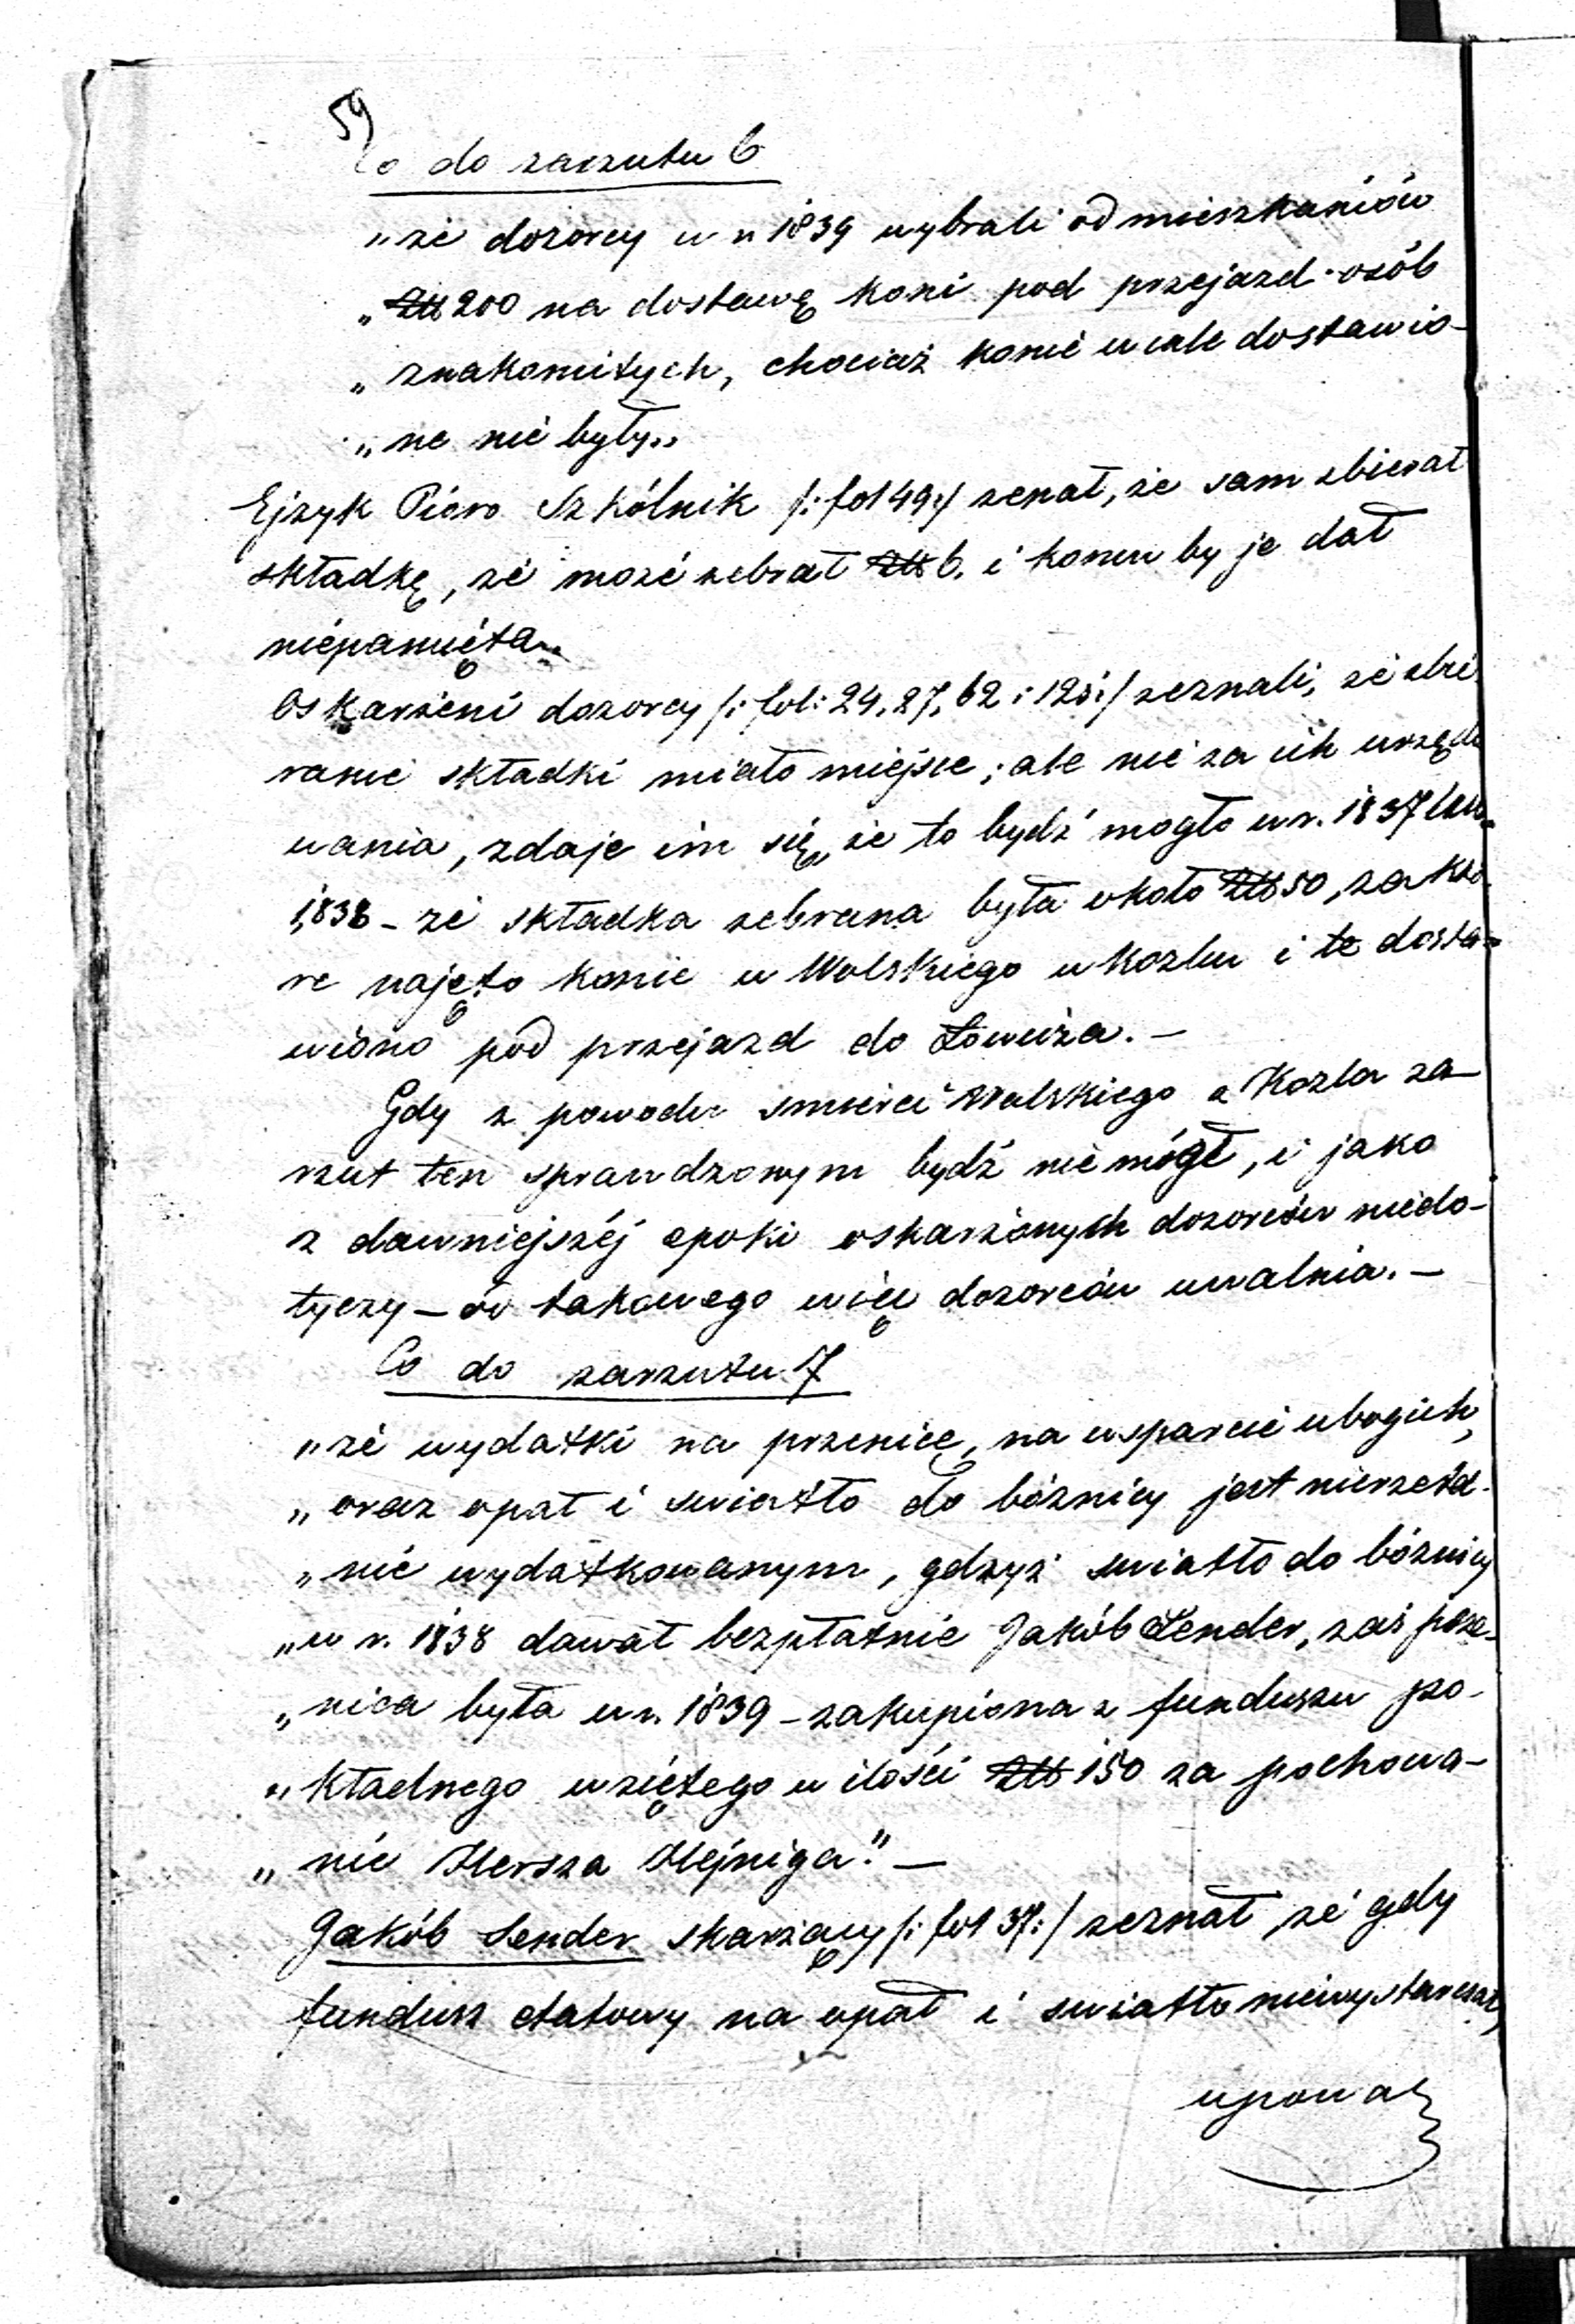 59
Co do zarzutu 6
„że dozorcy w r 1839 wybrali od mieszkańców
„Złł 200 na dostawę koni pod przejazd osób
„znakomitych, chociaż konie wcale dostawio-
„ne nie były„
Ejzyk Pióro Szkólnik /: fol 49:/ zenał, że sam zbierał
składkę, że może zebrał Złł 6. i komu by je dał
niepamięta.
Oskarżeni dozorcy /: fol: 24, 27, 62 i 125:/ zeznali, że zbie
ranie składki miało miejsce; ale nie za ich urzędo
wania, zdaje im się, że to bydź mogło w r. 1837 lub
1838 – że składka zebrana była około Złł 50, za któ
re najęto konie u Wolskiego w Kozlu i te dosta=
wiono pod przejazd do Łowicza. –
Gdy z powodu smierci Wolskiego z Kozla za-
rzut ten sprawdzonym bydź nie mógł, i jako
z dawniejszéj epoki oskarżonych dozorców niedo-
tyczy – od takowego więc dozorców uwalnia. –
Co do zarzutu 7
„że wydatki na przenicę, na wsparcie ubogich,
„oraz opał i swiatło do bóżnicy jest nierzetel-
„nie wydatkowanym, gdzyż swiatło do bóżnicy
„w r. 1838 dawał bezpłatnie Jakób Lender, zaś psze-
„nica była w r. 1839 – zakupiona z funduszu po-
„kładnego wziętego w ilości Złł 150 za pochowa-
„nie Hersza Hejniga." –
Jakób Lender skarżący /: fol 37:/ zeznał, że gdy
fundusz etatowy na opał i swiatło niewystarczał,
upowa